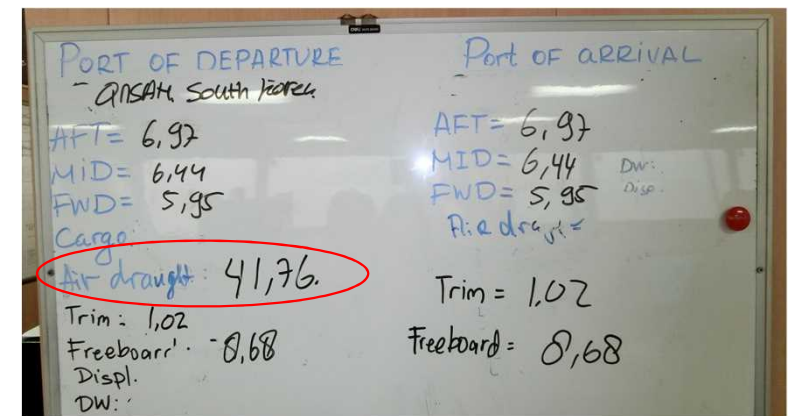 PORT OF DEPARTURE
- ANSAN, South Korea.
AFT= 6,97
MiD= 6,44
FWD= 5,95
Cargo:
Air draught: 41,76.
Trim: 1,02
Freeboard: - 8,68
Displ.
DW:
Port OF aRRiVAL
-
AFT= 6,97
MID= 6,44
FWD= 5,95
DW:
Disp.
Air draft=
Trim = 1,02
Freeboard = 8,68